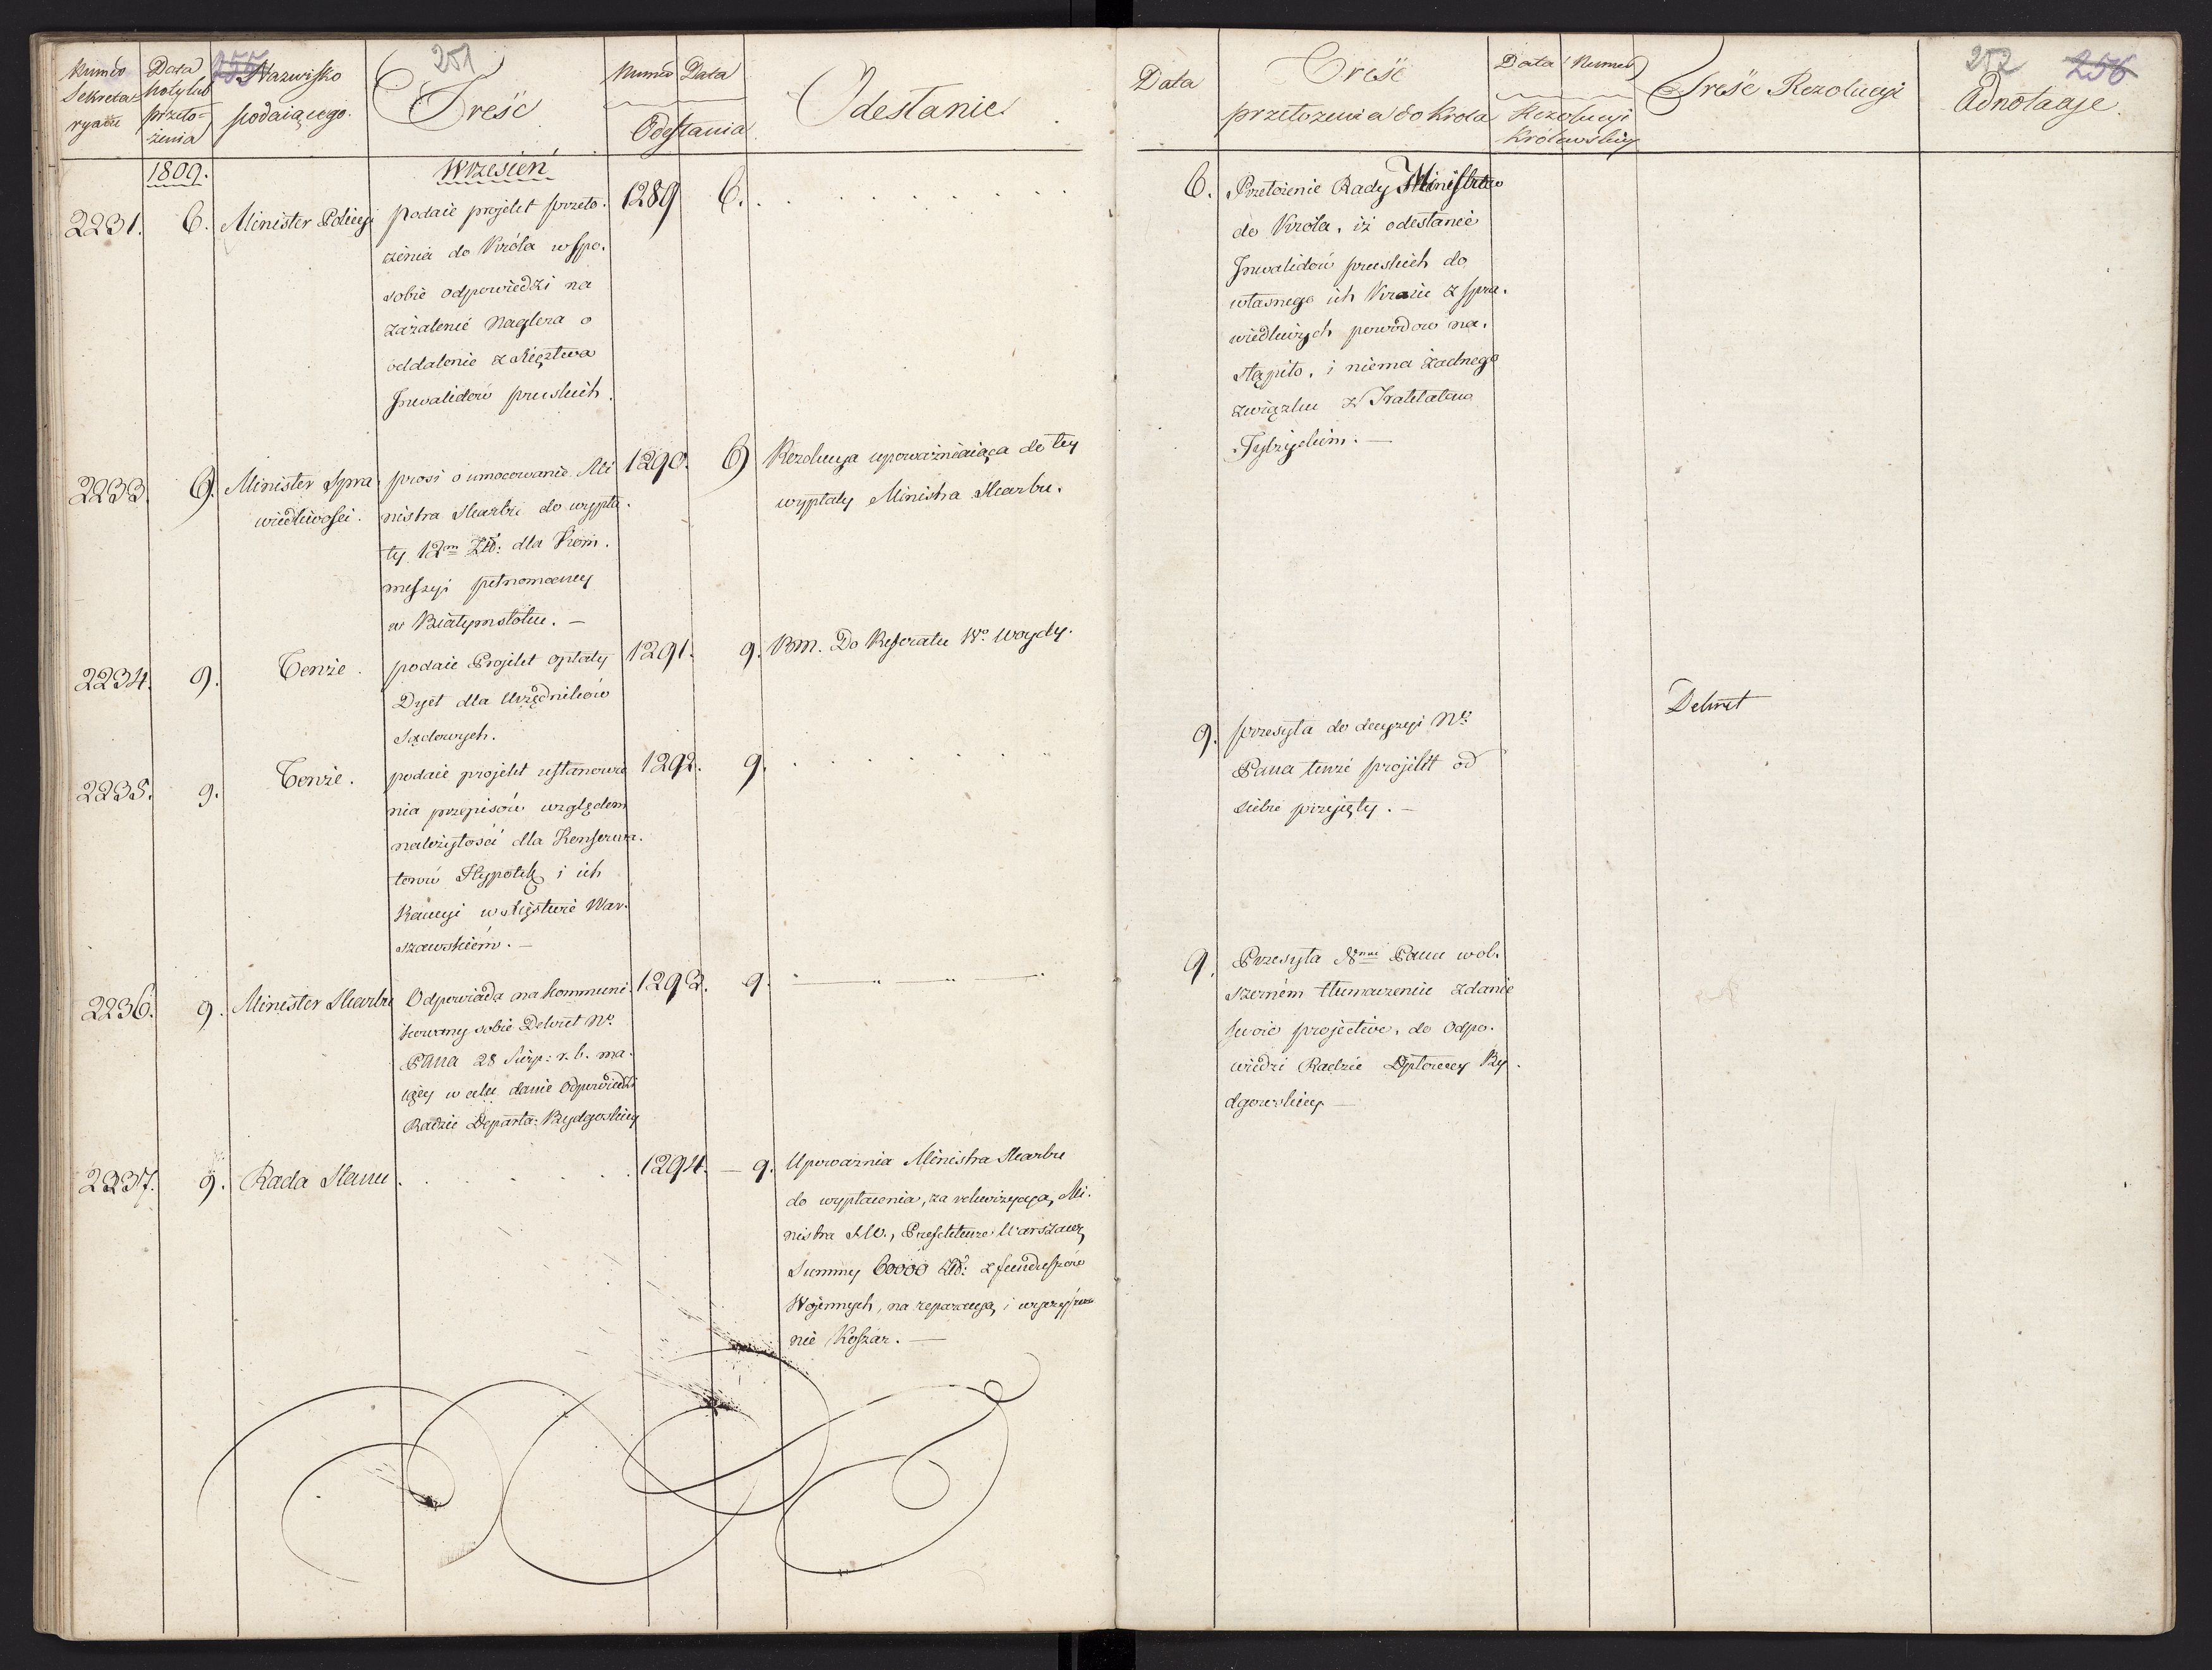 251
Numer Sekretaryatu
Data noty lub przełożenia
Nazwisko podaiącego.
Treść
Numer Data
Odesłania
Odesłanie
1809.
Wrzesień
2231. 6. Minister Policyi
podaie projekt przeło-
żenia do Króla wspo-
sobie odpowiedzi na
zażalenie Naglera o
oddalenie z Xięztwa
Inwalidów pruskich.
1289 6.
2233. 9. Minister Spra
wiedliwości.
prosi o umocowanie Mi
nistra Skarbu do wypła-
ty 12m Złł: dla Kom-
missyi pełnomocney
w Białymstoku. —
1290. 9
Rezolucya upoważniaiąca do tey
wypłaty Ministra Skarbu.
2234. 9. Tenże.
podaie Projekt opłaty
Dyet dla Urzędników
Sądowych.
1291. 9. BM. Do Referatu Wo Woydy.
2235. 9. Tenże.
podaie projekt ustanowie
nia przepisów względem
należytości dla Konserwa-
torów Hypotek i ich
Kaucyi w Xięstwie War-
szawskiem. —
1292. 9.
2236. 9. Minister Skarbu
Odpowiada na kommuni-
kowany sobie Dekret Nº
Pana 28 Sierp: r. b. ma-
iący w celu danie Odpowiedzi
Radzie Departa: Bydgoskiey
1293. 9.
2237. 9. Rada Stanu
1294. — 9.
Upoważnia Ministra Skarbu
do wypłacenia, za rekwizycyą, Mi-
nistra SW., Prefekturze Warszaw,
Summy 60000 Złł: z funduszów
Woiennych, na reparacyą, i
nie Koszar. —
252 256
Data
Treść
przełożenia do Króla
Data Numer
Rezolucyi
Królewskiey
Treść Rezolucyi
Adnotacye.
6. Przełożenie Rady Ministrów
do Króla, iż odesłanie
Inwalidów pruskich do
własnego ich Kraiu z spra-
wiedliwych powodów na-
stąpiło, i niema żadnego
związku z Traktatem
Tylżyckim. —
9. przesyła do decyzyi Nº
Pana tenże projekt od
siebie przyięty. —
Dekret
9. Przesyła Nmu Panu wob-
szernem tłumaczeniu zdanie
swoie projective, do Odpo-
wiedzi Radzie Dptowey By-
dgowskiey —